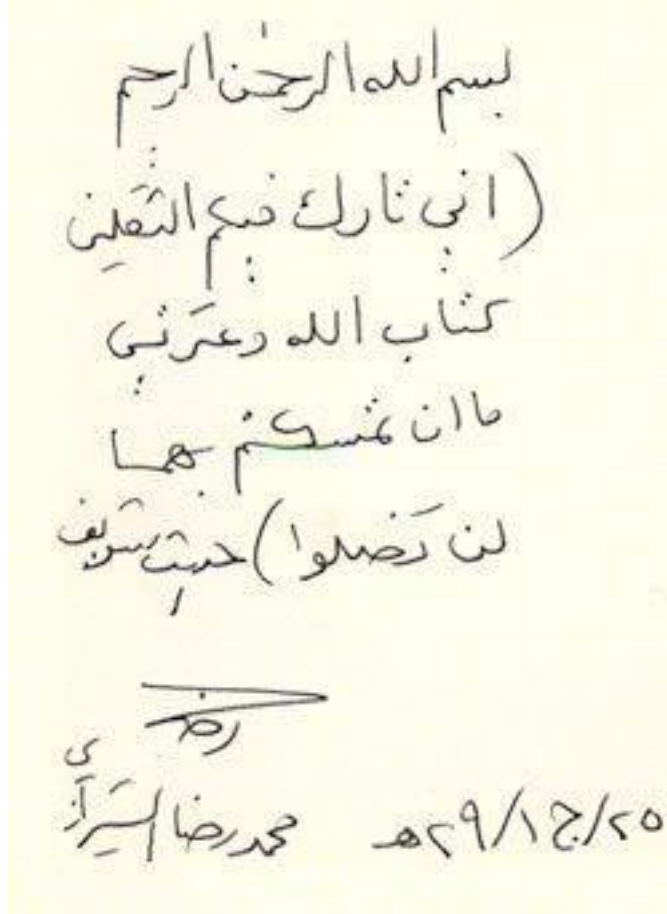 بسم الله الرحمن الرحيم
(اني تارك فيكم الثقلين
كتاب الله وعترتي
ما ان تمسكتم بهما
لن تضلوا) حديث شريف
محمد رضا الشيرازي
٢٥/ج١/٢٩هـ